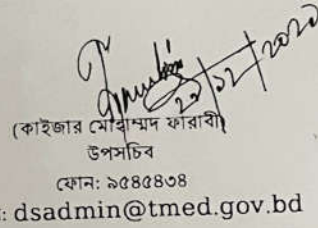 ২১/১২/২০২০
(কাইজার মোহাম্মদ ফারাবী)
উপসচিব
ফোন: ৯৫৪৫৪৩৪
: dsadmin@tmed.gov.bd